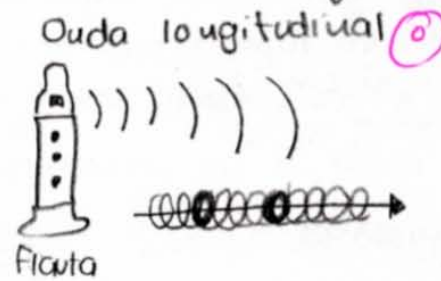 Onda longitudinal
Flauta